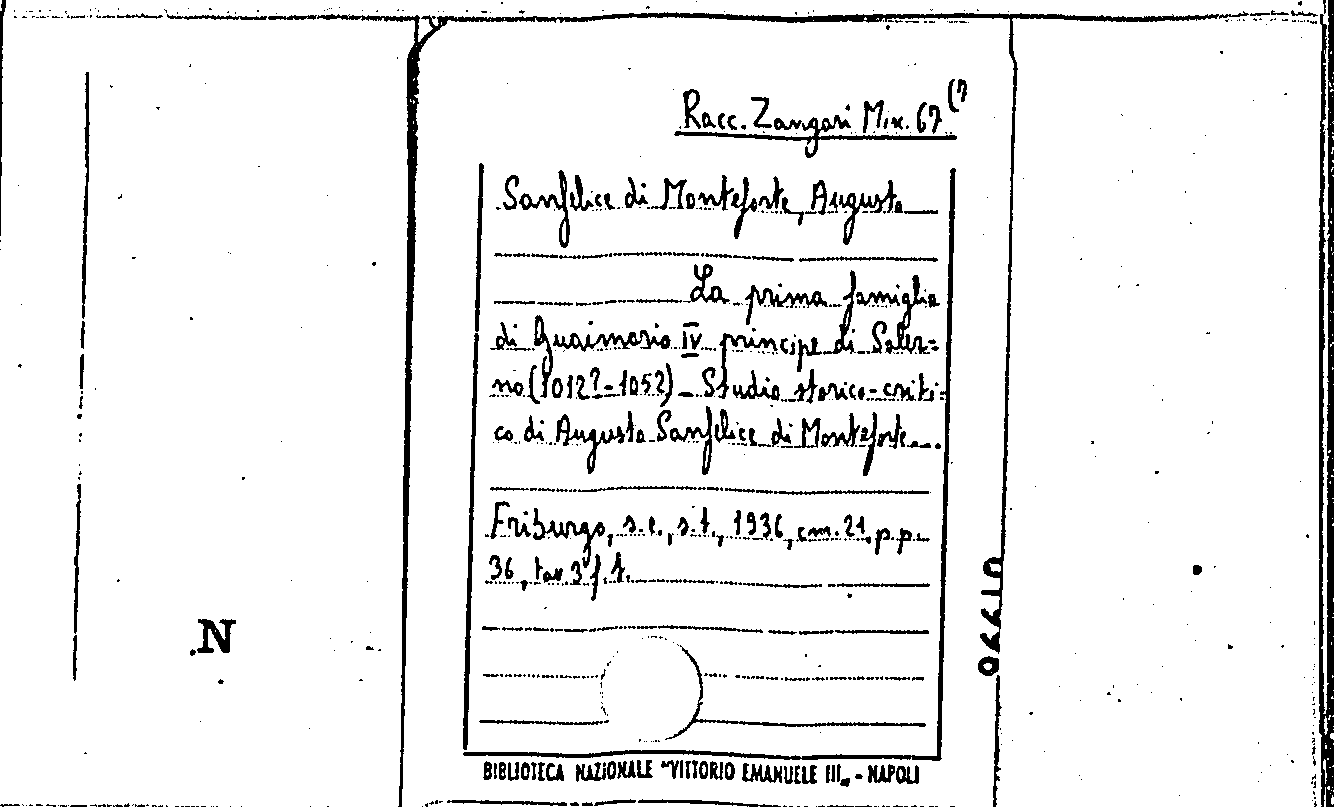 Racc. Zangari Mix. 67 (7
Sanfelice di Monteforte, Augusto
La prima famiglia
di Guaimario IV principe di Saler=
no (1012?-1052) - Studio storico-criti=
co di Augusto Sanfelice di Monteforte...
Friburgo, s.e., s.t., 1936, cm. 21, p.p.
36, tav. 3 f.t.
N
BIBLIOTECA NAZIONALE "VITTORIO EMANUELE III„ - NAPOLI